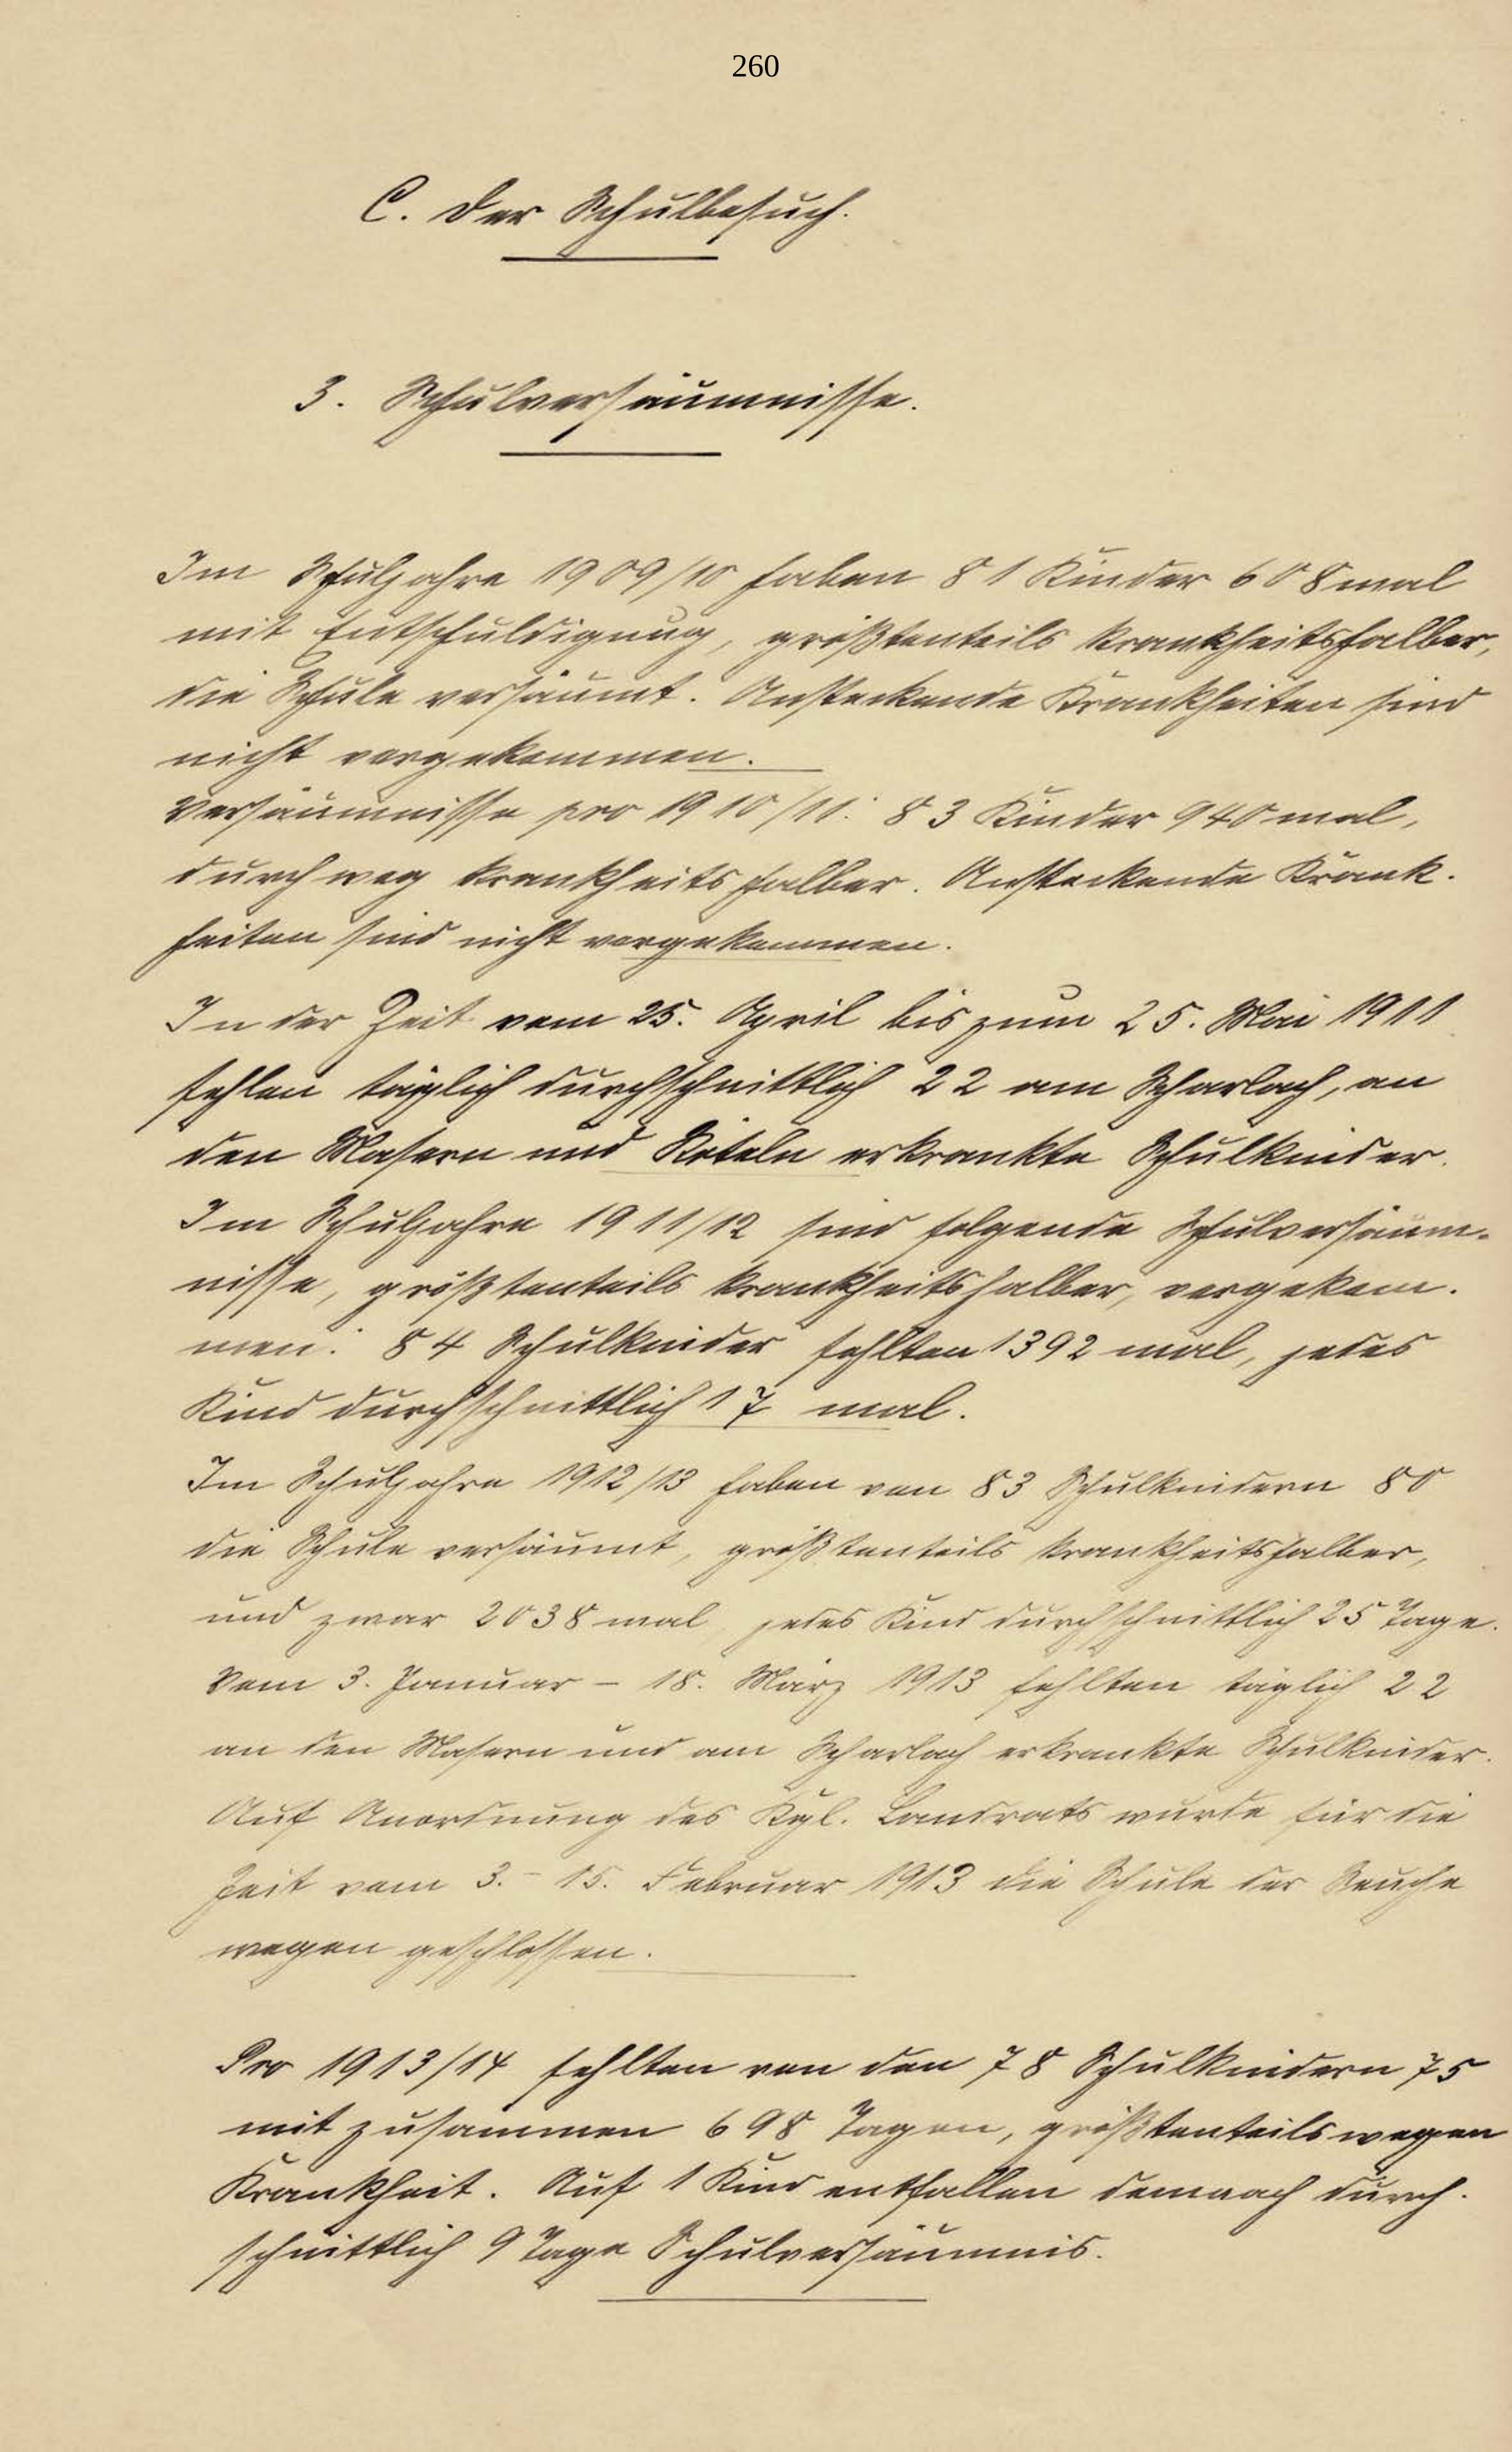 260
C. Der Schulbesuch.
3. Schulversäumnisse.
Im Schuljahre 1909/10 haben 81 Kinder 608mal
mit Entschuldigung, größtenteils krankheitshalber,
die Schule versäumt. Ansteckende Krankheiten sind
nicht vorgekommen.
Versäumnisse pro 1910/11: 83 Kinder 940mal,
durchweg krankheitshalber. Ansteckende Krank-
heiten sind nicht vorgekommen.
In der Zeit vom 25. April bis zum 25. Mai 1911
fehlen täglich durchschnittlich 22 am Scharlach, an
den Masern und Röteln erkrankte Schulkinder.
Im Schuljahre 1911/12 sind folgende Schulversäum-
nisse, größtenteils krankheitshalber, vorgekom-
men: 84 Schulkinder fehlten 1392 mal, jedes
Kind durchschnittlich 17 mal.
Im Schuljahre 1912/13 haben von 83 Schulkindern 80
die Schule versäumt, größtenteils krankheitshalber,
und zwar 2038 mal, jedes Kind durchschnittlich 25 Tage.
Vom 3. Januar – 18. März 1913 fehlten täglich 22
an den Masern und am Scharlach erkrankte Schulkinder.
Auf Anordnung des Kgl. Landrats wurde für die
Zeit vom 3. – 15. Februar 1913 die Schule der Seuche
wegen geschlossen.
Pro 1913/14 fehlten von den 78 Schulkindern 75
mit zusammen 698 Tagen, größtenteils wegen
Krankheit. Auf 1 Kind entfallen demnach durch-
schnittlich 9 Tage Schulversäumnis.